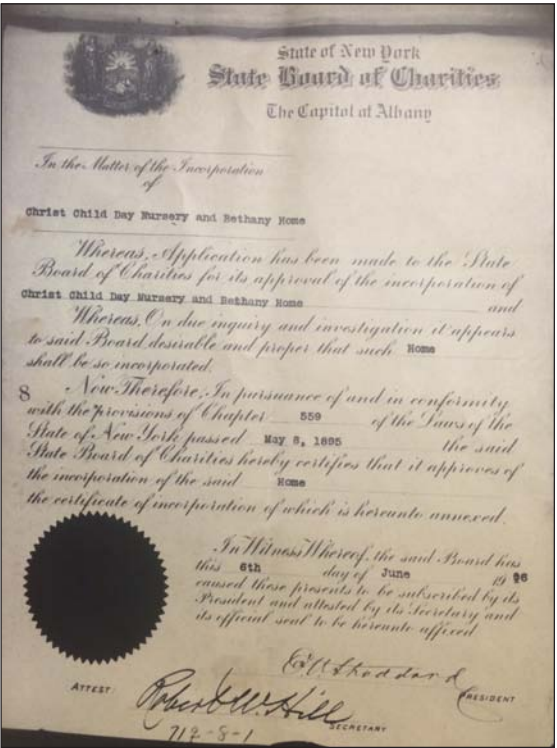 State of New York
State Board of Charities
The Capitol at Albany
In the Matter of the Incorporation
of
Christ Child Day Nursery and Bethany Home
Whereas, Application has been made to the State
Board of Charities for its approval of the incorporation of
Christ Child Day Nursery and Bethany Home and
Whereas, On due inquiry and investigation it appears
to said Board desirable and proper that such Home
shall be so incorporated.
8 Now Therefore, In pursuance of and in conformity
with the provisions of Chapter 559 of the Laws of the
State of New York passed May 8, 1895 the said
State Board of Charities hereby certifies that it approves of
the incorporation of the said Home
the certificate of incorporation of which is hereunto annexed.
In Witness Whereof, the said Board has
this 6th day of June
caused these presents to be subscribed by its
President and attested by its Secretary and
its official seal to be hereunto affixed
PRESIDENT
ATTEST: Robert W. Hill
SECRETARY
712-8-1